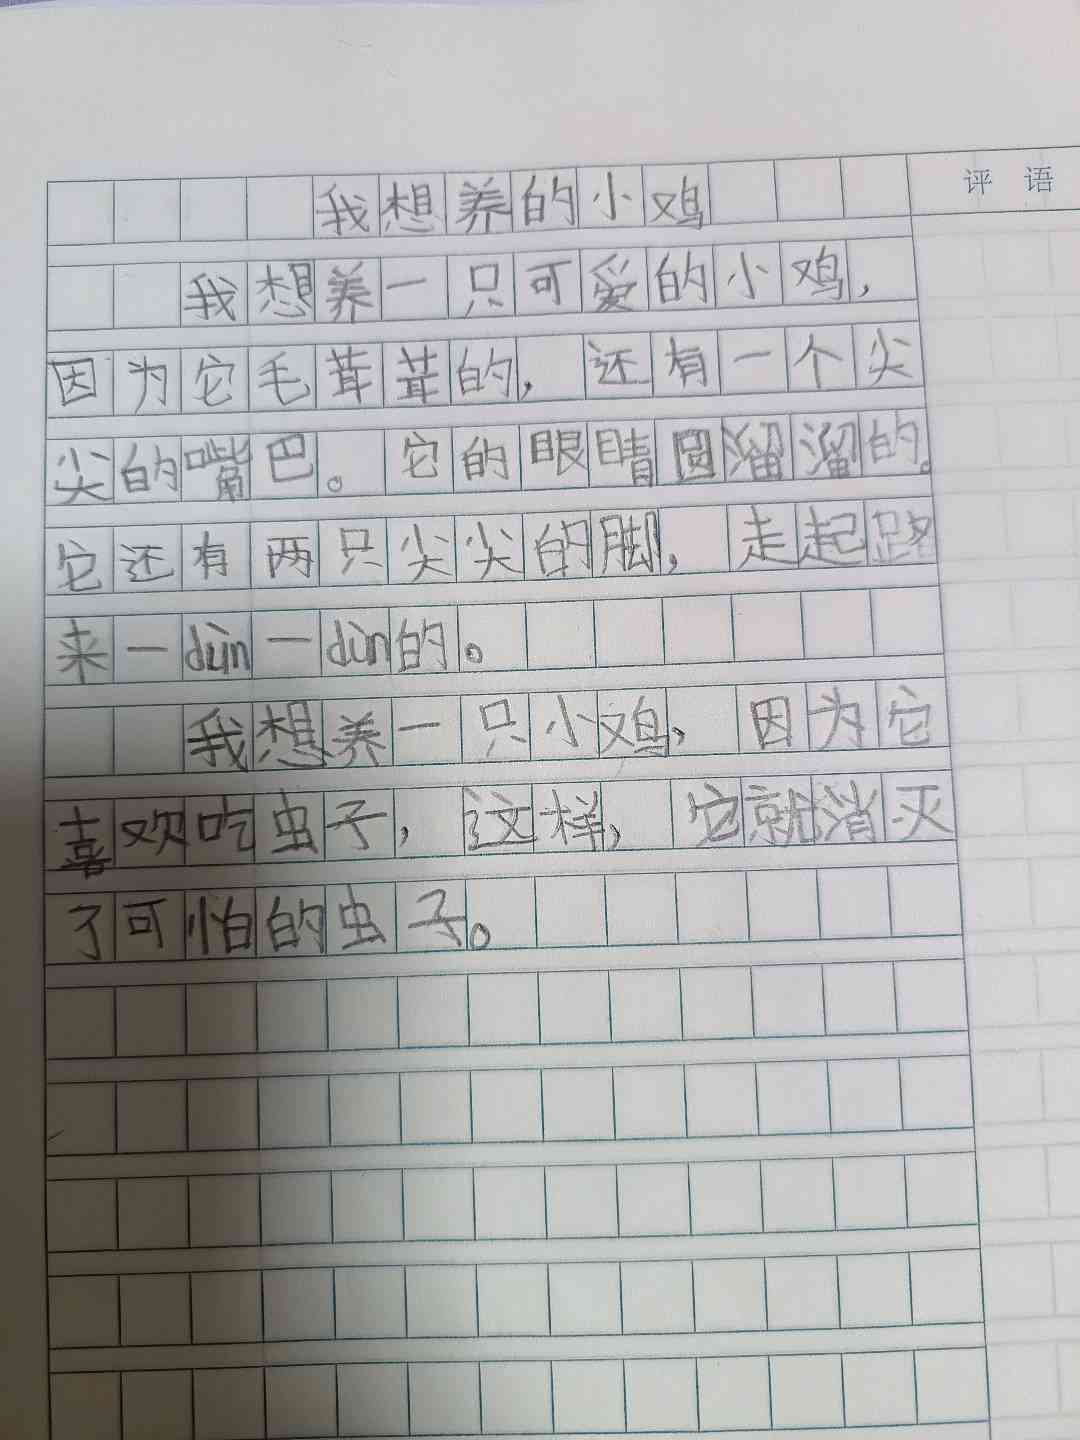 评语
我想养的小鸡
我想养一只可爱的小鸡，
因为它毛茸茸的，还有一个尖
尖的嘴巴。它的眼睛圆溜溜的。
它还有两只尖尖的脚，走起路
来一dùn一dùn的。
我想养一只小鸡，因为它
喜欢吃虫子，这样，它就消灭
了可怕的虫子。